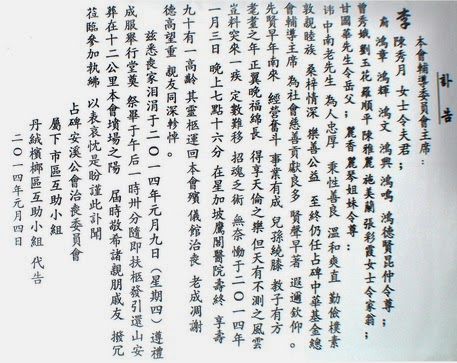 訃告
本會輔導委員會主席：
李 陳秀月 女士令夫君；
裔 鴻章 鴻輝 鴻文 鴻興 鴻鳴 鴻德賢昆仲令尊；
甘國華先生令岳父；麗香 麗琴姐妹令尊；
曾秀娥 劉玉花 羅順平 陳雅麗 施美蘭 張彩霞女士令家翁；
諱中南老先生 為人忠厚 秉性善良 溫和爽直 勤儉樸素
敦親睦族 桑梓情深 樂善公益 至終仍任占碑中華基金總
會輔導主席 為社會慈善貢獻良多 賢聲早著 遐邇欽仰。
先賢早年南來 經營奮斗 事業有成 兒孫繞膝 教子有方
耄耋之年正冀晚福綿長 得享天倫之樂 但天有不測之風雲
豈料突來一疾 定數難移 招魂乏術 無奈慟于二〇一四年
一月三日 晚上七點十六分 在星加坡鷹閣醫院壽終 享壽
九十有一高齡 其靈柩運回本會殯儀館治喪 老成凋謝
德高望重 親友同深軫悼。
茲悉喪家泪涓于二〇一四年元月九日（星期四）遵禮
成服舉行堂奠 祭畢于午后一時卅分隨即扶柩發引還山安
葬在十二公里本會墳場之陽 屆時敬希諸親朋戚友 撥冗
蒞臨參加執紼 以表哀忱是盼謹此訃聞
占碑安溪公會治喪委員會
屬下市區互助小組
丹絨檳榔區互助小組 代告
二〇一四年元月四日